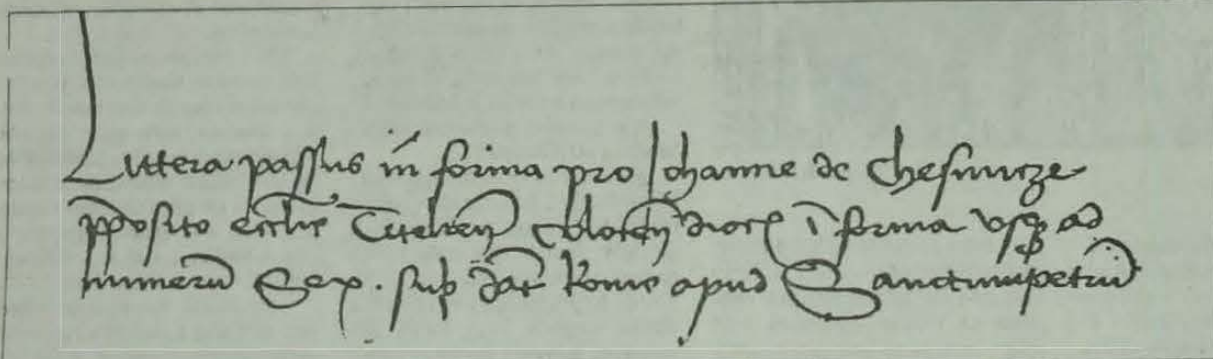 Littera passus in forma pro Johanne de Chesmicze
pposito ecclie Titelien Colocen dioc i forma usq ad
numerū Sex. sub dat Rome apud Sanctumpetrū